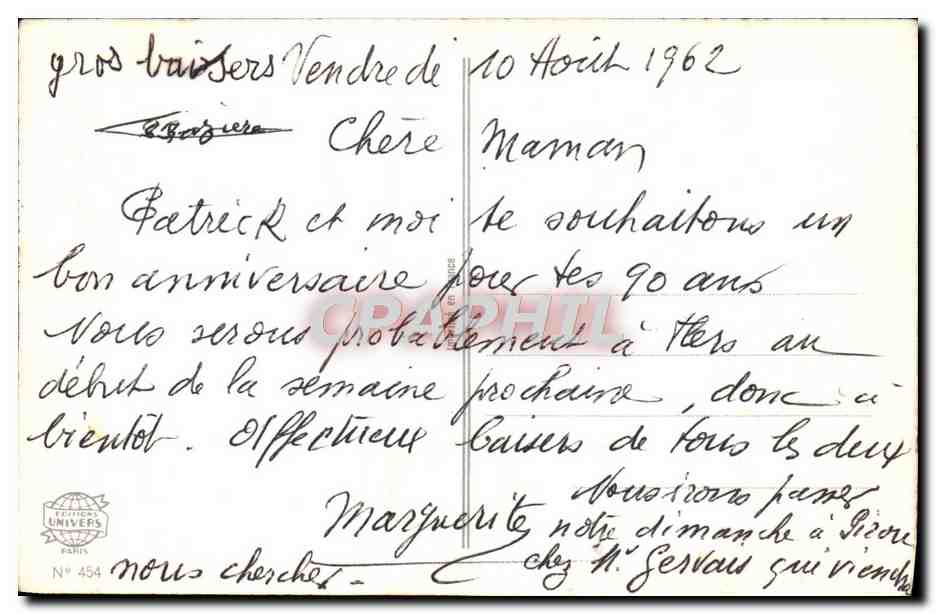 gros baisers Vendredi 10 Août 1962
Chère Maman
Patrick et moi te souhaitons un
bon anniversaire pour tes 90 ans
Nous serons probablement à Flers au
début de la semaine prochaine, donc à
bientôt. Affectueux baisers de tous les deux
Marguerite
Nous irons passer
notre dimanche à Pirou
chez Mr Gervais qui viendra
nous chercher -
EDITIONS
UNIVERS
PARIS
N° 454
CPAPHIL